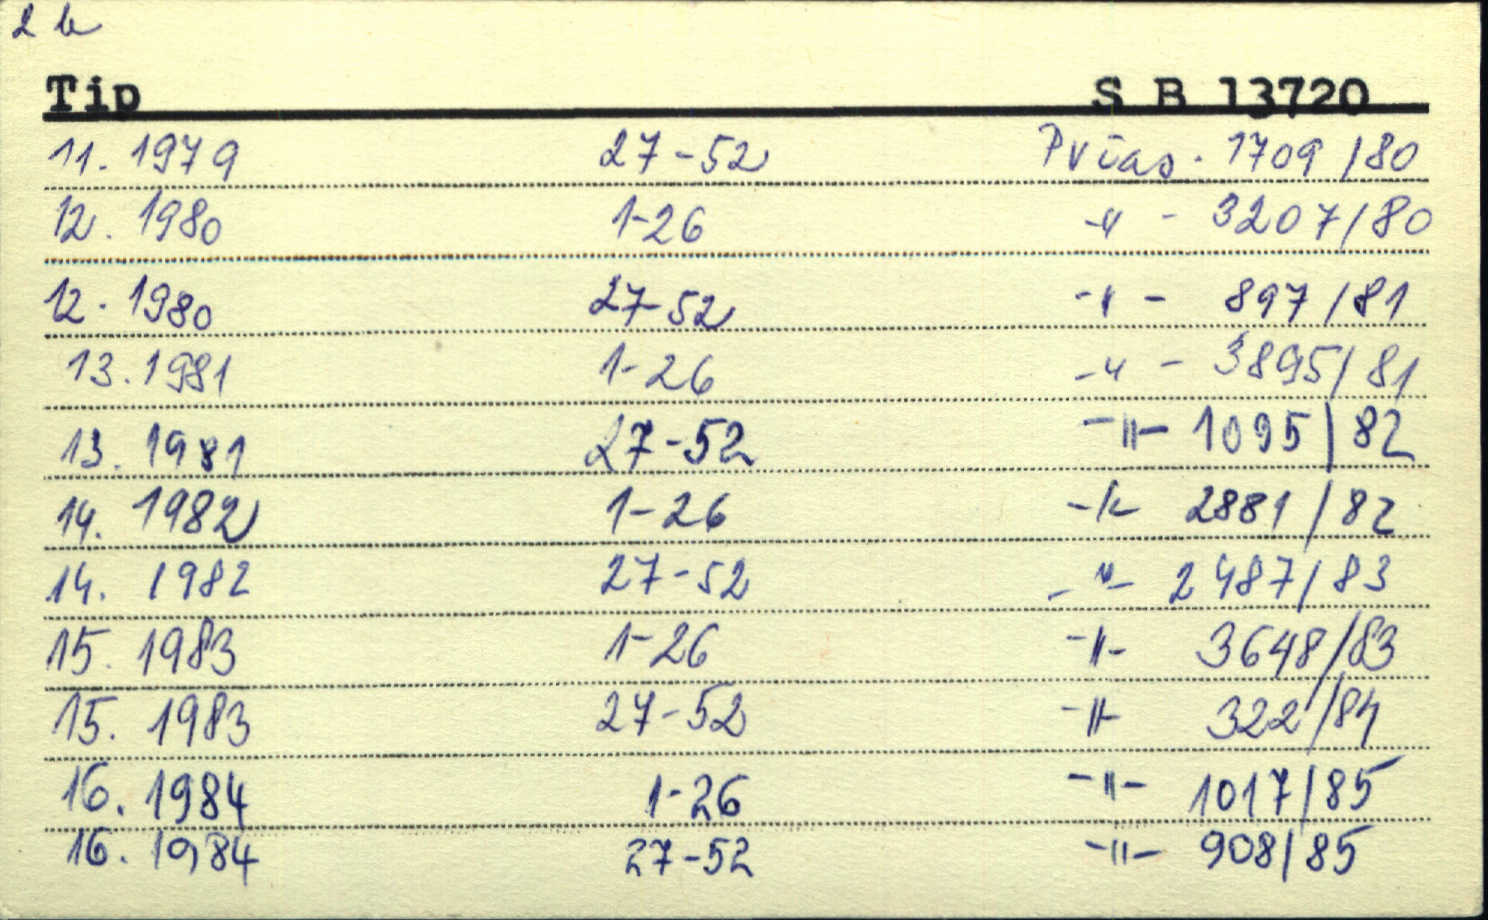 2 b
Tip S B 13720
11. 1979 27-52 Prias. 1709/80
12. 1980 1-26 -"- 3207/80
12. 1980 27-52 -"- 897/81
13. 1981 1-26 -"- 3895/81
13. 1981 27-52 -"- 1095/82
14. 1982 1-26 -"- 2881/82
14. 1982 27-52 -"- 2487/83
15. 1983 1-26 -"- 3648/83
15. 1983 27-52 -"- 322/84
16. 1984 1-26 -"- 1017/85
16. 1984 27-52 -"- 908/85